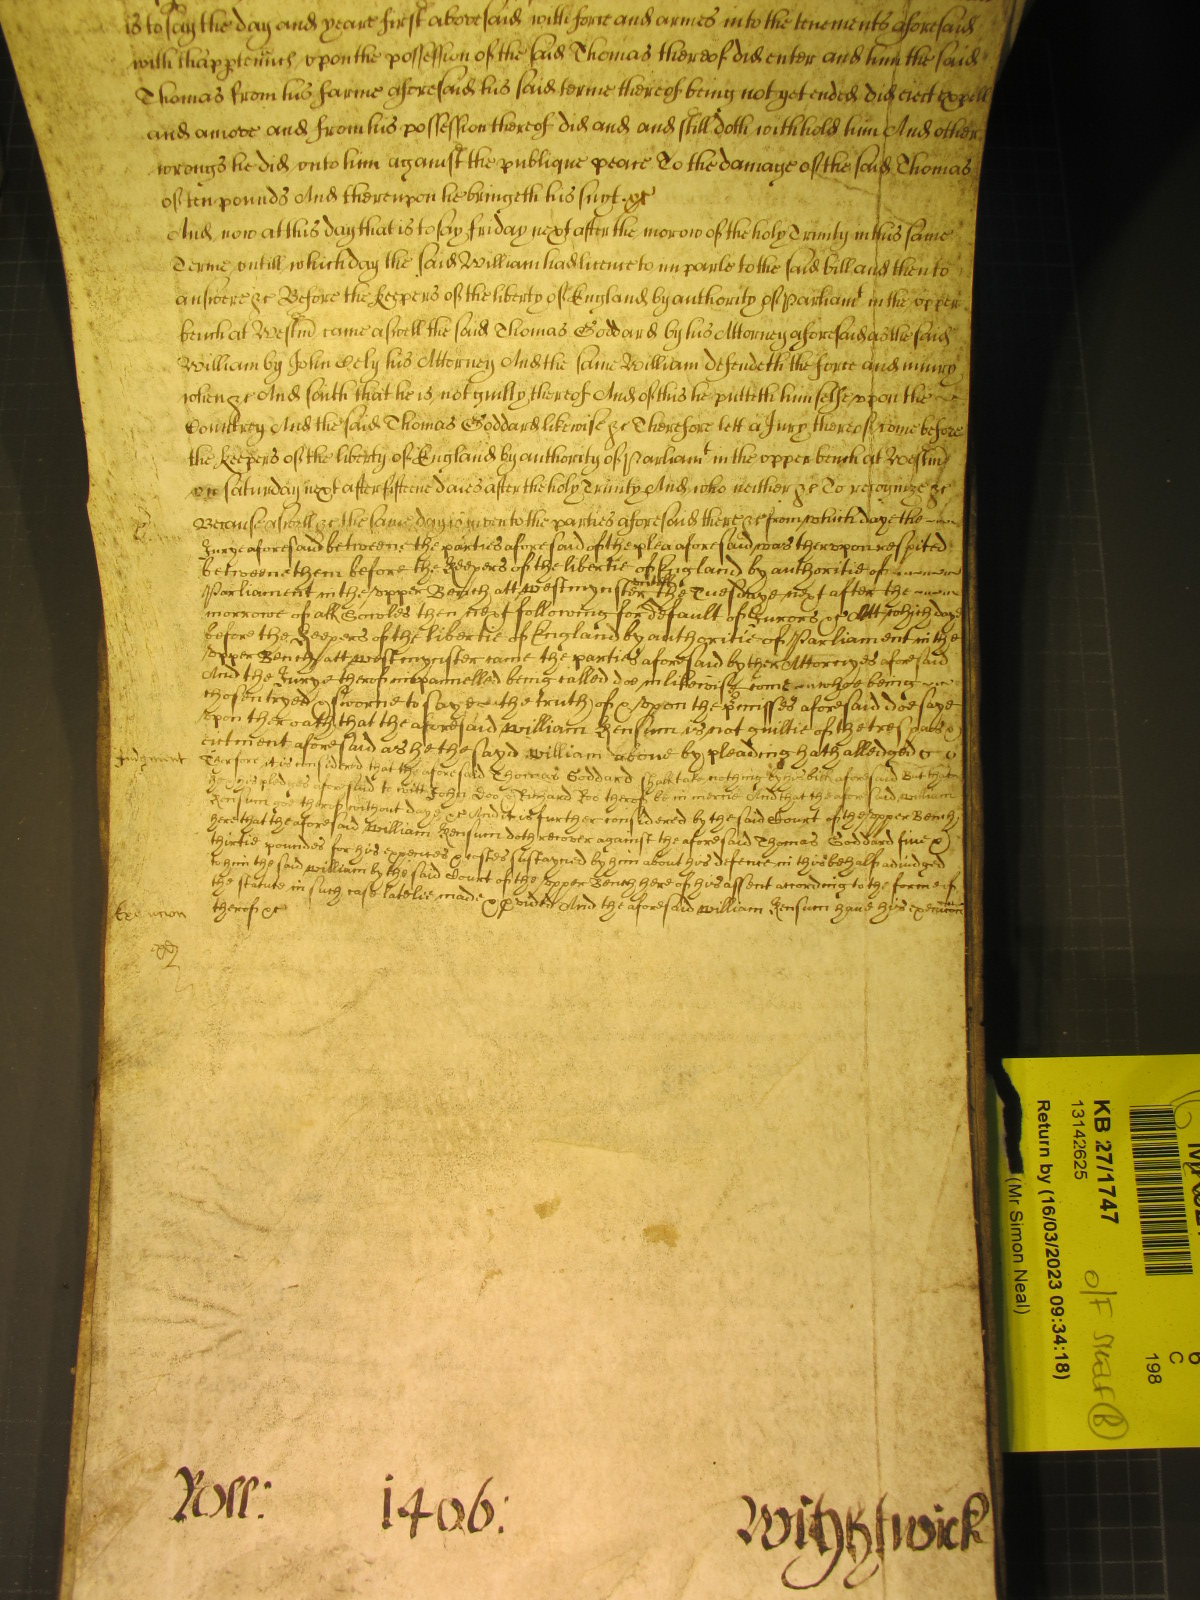 is to say the day and yeare first abovesaid with force and armes into the tenements aforesaid
with thapptenncs upon the possession of the said Thomas thereof did enter and him the said
Thomas from his farme aforesaid his said terme thereof being not yet ended did eiect expell
and amove and from his possession thereof did and and still doth withhold him And other
wrongs he did unto him against the publique peace To the damage of the said Thomas
of ten pounds And thereupon he bringeth his suyt &c
And now at this day that is to say friday next after the morow of the holy Trinity in this same
Terme untill which day the said William had licence to imparle to the said bill and then to
answere &c Before the keepers of the liberty of England by authority of Parliamt in the upper
bench at Westm came aswell the said Thomas Goddard by his Attorney aforesaid as the said
William by John Cely his Attorney And the same William defendeth the force and iniury
when &c And saith that he is not guilty thereof And of this he putteth himselfe upon the
Countrey And the said Thomas Goddard likewise &c Therefore lett a Jury thereof come before
the keepers of the liberty of England by authority of Parliamt in the upper bench at Westm
on Saturday next after fifteene daies after the holy Trinity And who neither &c To recognize &c
Because aswell &c the same day is given to the parties aforesaid there &c from which daye the
Jurye aforesaid betweene the parties aforesaid of the plea aforesaid was therupon respited
betweene them before the Keepers of the libertie of England by authoritie of
Parliament in the upper Bench att westmynster untill the Tuesdaye next after the
morrowe of all Sowles then next following for default of Jurors &c Att which daye
before the Keepers of the libertie of England by authoritie of Parliament in the
upper Bench att westmynster came the parties aforesaid by ther Attorneyes aforesaid
And the Jurye therof impannelled being called doe in likewise come whoe being
chosen tryed & sworne to saye the truth of & upon the pmisses aforesaid doe saye
upon ther oath that the aforesaid William Kensum is not guiltie of the trespas &
eiectment aforesaid as he the sayd William above by pleading hath alledged
Judgment Therfore it is considered that the aforesaid Thomas Goddard shall take nothing by his bill aforesaid But that
he & his pledges aforesaid to witt John Doe & Richard Roe therof be in mercie And that the aforesaid William
Kensum goe therof without daye &c And it is further considered by the said Court of the upper Bench
here that the aforesaid William Kensum doth recover against the aforesaid Thomas Goddard five &
thirtie poundes for his expences & costes sustayned by him about his defence in this behalf adiudged
to him the said William by the said Court of the upper Bench here of his assent according to the forme of
the statute in such case latelie made & pvided And the aforesaid William Kensum have his execucion
Execucion therof &c
Roll: 1406: Wightwick
KB 27/1747
13142625
Return by (16/03/2023 09:34:18)
(Mr Simon Neal)
O/F
6
C
198